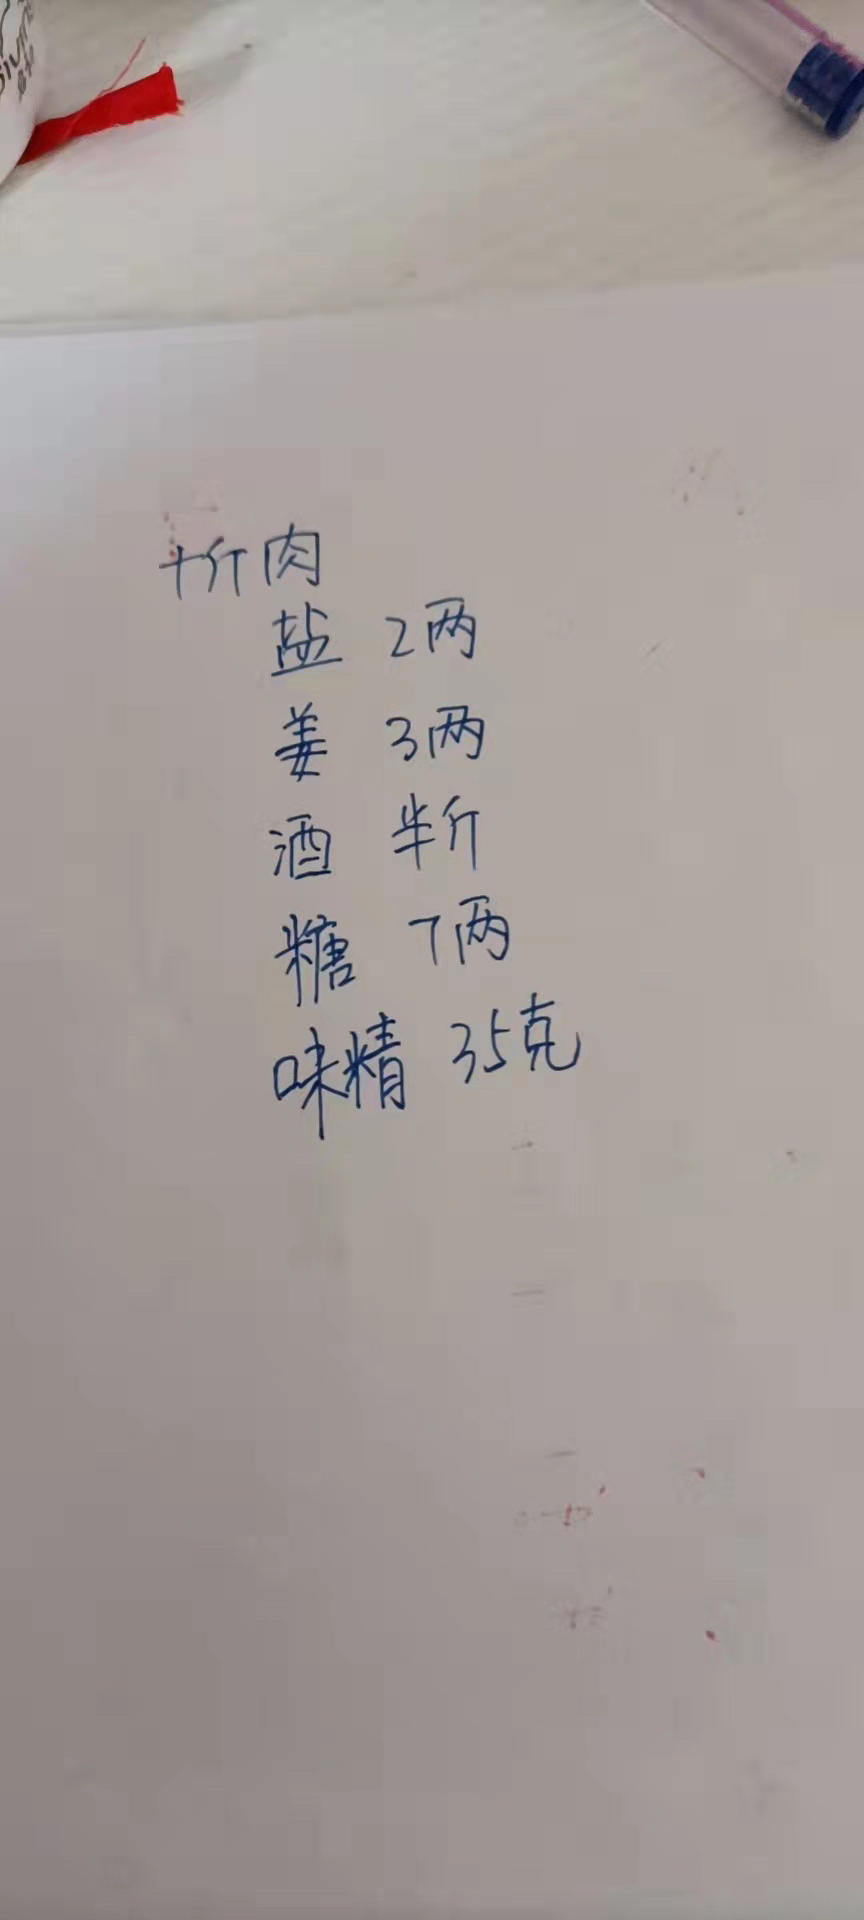 十斤肉
盐 2两
姜 3两
酒 半斤
糖 7两
味精 35克